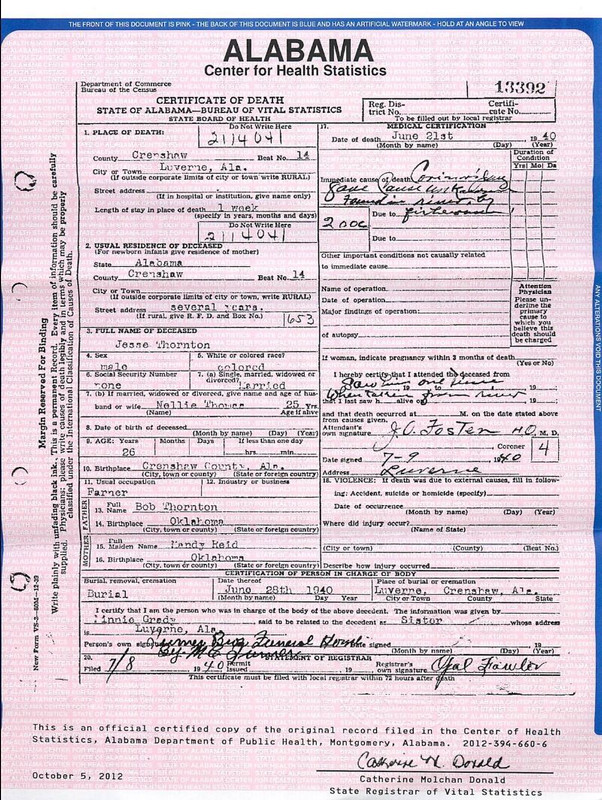 THE FRONT OF THIS DOCUMENT IS PINK - THE BACK OF THIS DOCUMENT IS BLUE AND HAS AN ARTIFICIAL WATERMARK - HOLD AT AN ANGLE TO VIEW
ALABAMA
Center for Health Statistics
Department of Commerce
Bureau of the Census
13392
CERTIFICATE OF DEATH
STATE OF ALABAMA—BUREAU OF VITAL STATISTICS
STATE BOARD OF HEALTH
Reg. Dis-
trict No.
Certifi-
cate No.
To be filled out by local registrar
1. PLACE OF DEATH:
Do Not Write Here
2114041
County Crenshaw Beat No. 14
City or Town Luverne, Ala.
(If outside corporate limits of city or town write RURAL)
Street address
(If in hospital or institution, give name only)
Length of stay in place of death 1 week
(specify in years, months and days)
Do Not Write Here
2114041
2. USUAL RESIDENCE OF DECEASED
(For newborn infants give residence of mother)
State Alabama
County Crenshaw Beat No. 14
City or Town
(If outside corporate limits of city or town, write RURAL)
Street address several years.
(If rural, give R. F. D. and Box No.)
1653
3. FULL NAME OF DECEASED
Jesse Thornton
4. Sex
male
5. White or colored race?
colored
6. Social Security Number
none
7. (a) Single, married, widowed or
divorced?
Married
7. (b) If married, widowed or divorced, give name and age of hus-
band or wife Nellie 25 Yrs.
(Name) Age if alive
8. Date of birth of deceased
(Month by name) (Day) (Year)
9. AGE: Years Months Days If less than one day
26 hrs. min.
10. Birthplace Crenshaw County, Ala.
(City, town or county) (State or foreign country)
11. Usual occupation
Farmer
12. Industry or business
FATHER
13. Full Name Bob Thornton
14. Birthplace Oklahoma
(City, town or county) (State or foreign country)
MOTHER
15. Full Maiden Name Mandy Reid
16. Birthplace Oklahoma
(City, town or county) (State or foreign country)
17. MEDICAL CERTIFICATION
Date of death June 21st 1940
(Month by name) (Day) (Year)
Duration of
Condition
Yrs Mo Da
Immediate cause of death
Found in river by
Due to fisherman
200c
Due to
Other important conditions not causally related
to immediate cause
Name of operation
Date of operation
Major findings of operation
of autopsy
Attention
Physician
Please un-
derline the
primary
cause to
which you
believe this
death should
be charged
If woman, indicate pregnancy within 3 months of death
(Yes or No)
I hereby certify that I attended the deceased from
Saw him one time
19 to 19
When taken from river
that I last saw h alive on 19
and that occurred at M. on the date stated above
from causes given.
Attendant's
own signature J.O. Foster M.D. M. D.
Coroner
4
Date signed 7-9 1940
Address Luverne
18. VIOLENCE: If death was due to external causes, fill in follow-
ing: Accident, suicide or homicide (specify)
Date of occurrence
(Month by name) (Day) (Year)
Where did injury occur?
(Name of State)
(City or town) (County) (Beat No.)
Describe how injury occurred
CERTIFICATION OF PERSON IN CHARGE OF BODY
Burial, removal, cremation
Burial
Date thereof
June 28th 1940
(Month by name) (Day) (Year)
Place of burial or cremation
Luverne, Crenshaw, Ala.
City or Town County State
I certify that I am the person who was in charge of the body of the above decedent. The information was given by
Minnie Grady said to be related to the decedent as Sister whose address
is Luverne, Ala.
Person's own signature Turner Bros Funeral Home Date signed
By M.E. Turner
(Month by name) (Day) (Year)
20. STATEMENT OF REGISTRAR
Filed 7/8 1940 Permit Issued 19 Registrar's own signature
This certificate must be filed with local registrar within 72 hours after death
Margin Reserved For Binding
Write plainly with unfading black ink. This is a permanent Record. Every item of information should be carefully
supplied. Physicians: please write causes of death legibly and in terms which may be properly
classified under the International Classification of Causes of Death.
New Form VS-3
ANY ALTERATIONS VOID THIS DOCUMENT
This is an official certified copy of the original record filed in the Center of Health
Statistics, Alabama Department of Public Health, Montgomery, Alabama. 2012-394-660-6
Catherine M. Donald
October 5, 2012
Catherine Molchan Donald
State Registrar of Vital Statistics